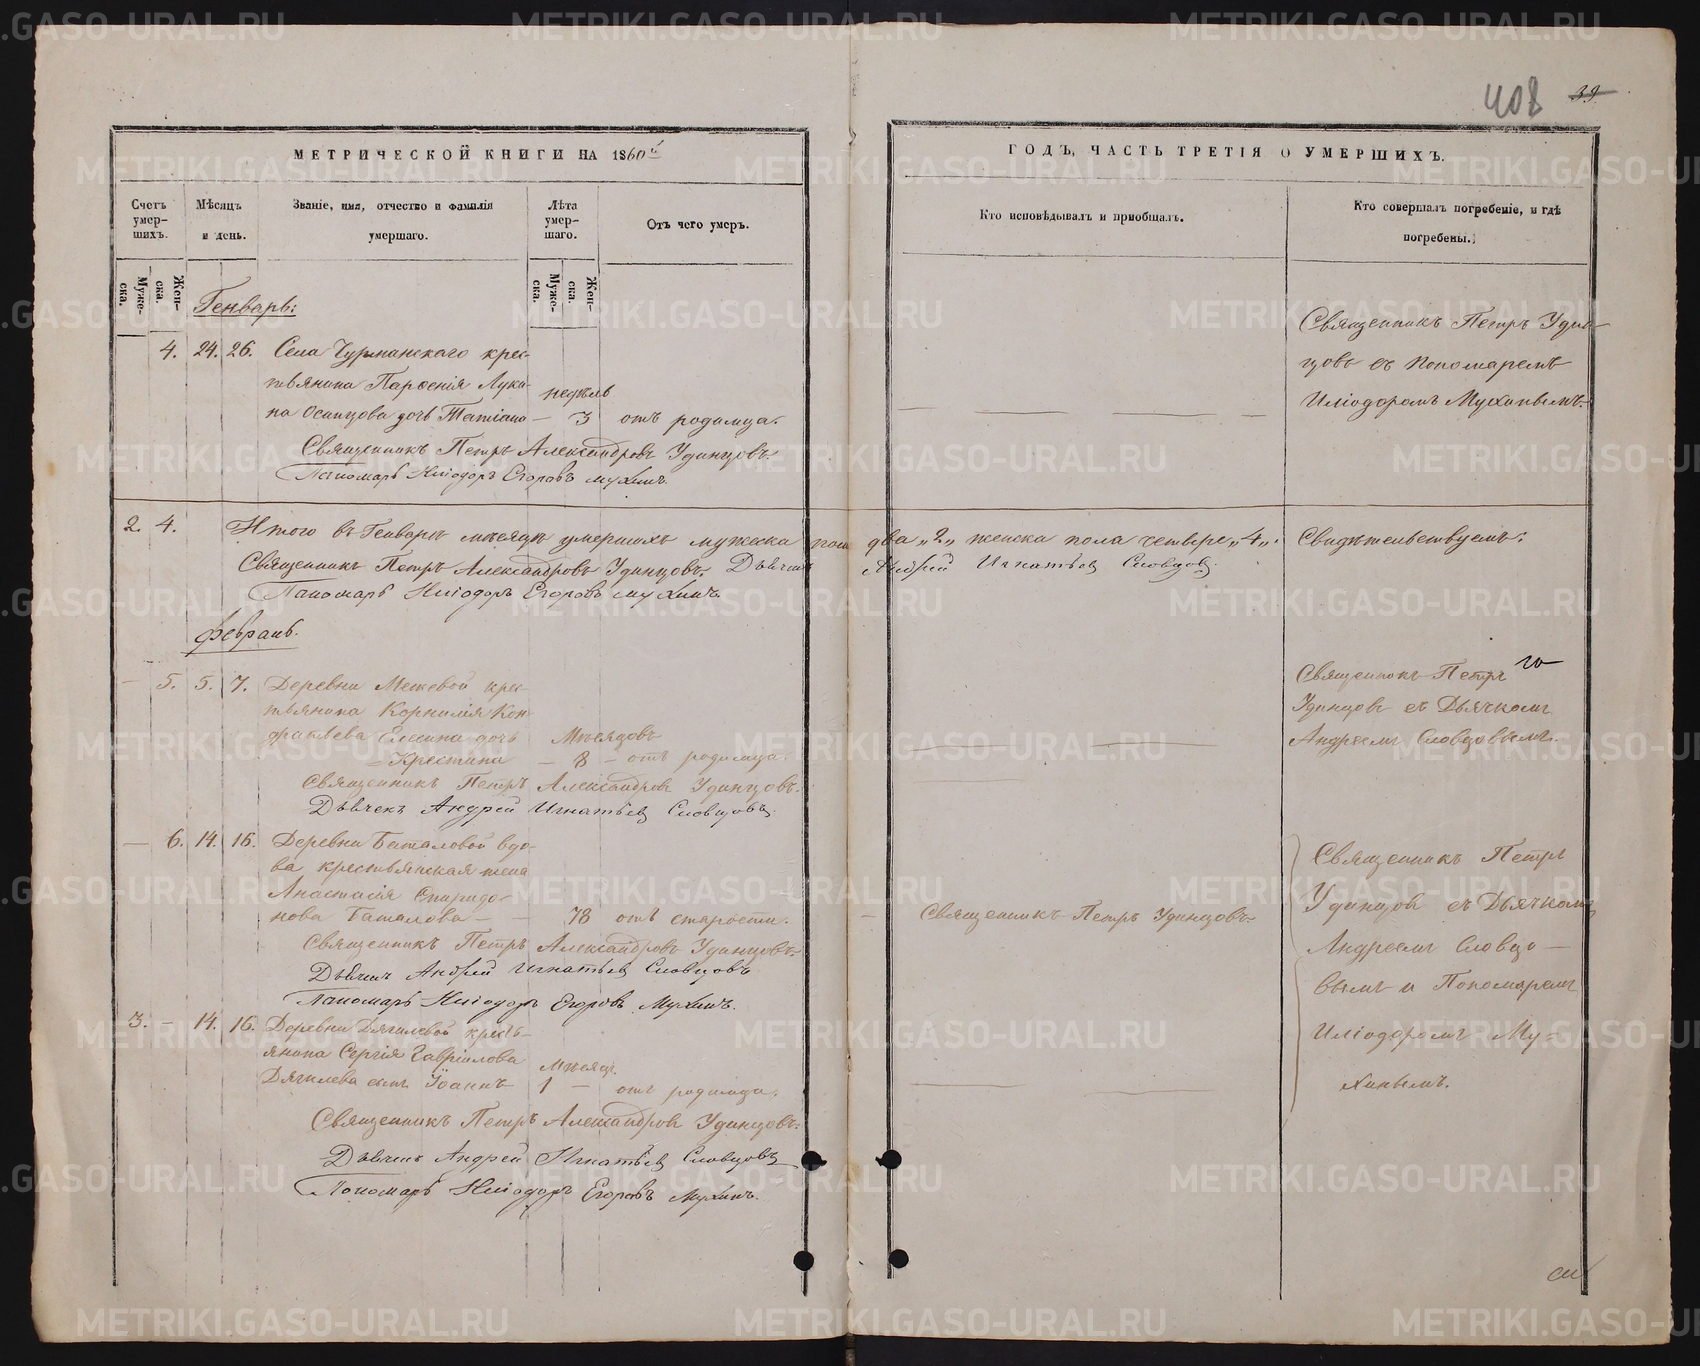 408 39
МЕТРИЧЕСКОЙ КНИГИ НА 1860й
Счетъ умер-шихъ.
Муже-ска.
Жен-ска.
Мѣсяцъ и день.
Званіе, имя, отчество и фамилія умершаго.
Лѣта умер-шаго.
Муже-ска.
Жен-ска.
Отъ чего умеръ.
Генварь:
4. 24. 26. Села Чурманскаго крес-
тьянина Парѳенія Луки-
недѣль
на Осинцова дочь Татіана — 3 отъ родимца.
Священникъ Петръ Александровъ Удинцовъ.
Пономарь Иліодоръ Егоровъ Мухинъ.
2. 4. Итого въ Генварѣ мѣсяцѣ умершихъ мужеска пола
Священникъ Петръ Александровъ Удинцовъ. Дьячекъ
Пономарь Иліодоръ Егоровъ Мухинъ
Февраль.
— 5. 5. 7. Деревни Межевой крес-
тьянина Корнилія Кон-
дратьева дочь Мѣсяцовъ
Крестина — 8 — отъ родимца.
Священникъ Петръ Александровъ Удинцовъ.
Дьячекъ Андрей Игнатьевъ Словцовъ.
— 6. 14. 16. Деревни Баталовой вдо-
ва крестьянская жена
Анастасія Спиридо-
нова Баталова — — 78 отъ старости.
Священникъ Петръ Александровъ Удинцовъ.
Дьячекъ Андрей Игнатьевъ Словцовъ
Пономарь Иліодоръ Егоровъ Мухинъ.
3. — 14. 16. Деревни Дягилевой кресть-
янина Сергія Гавріилова Мѣсяцъ.
Дягилева сынъ Іоаннъ 1 — отъ родимца.
Священникъ Петръ Александровъ Удинцовъ.
Дьячекъ Андрей Игнатьевъ Словцовъ
Пономарь Иліодоръ Егоровъ Мухинъ.
ГОДЪ, ЧАСТЬ ТРЕТІЯ О УМЕРШИХЪ.
Кто исповѣдывалъ и пріобщалъ.
Кто совершалъ погребеніе, и гдѣ
погребены.
Священникъ Петръ Удин-
цовъ съ Пономаремъ
Иліодоромъ Мухинымъ.
два „2„ женска пола четыре „4„. Свидѣтельствуемъ:
Андрей Игнатьевъ Словцовъ.
Священникъ Петръ
Удинцовъ съ Дьячкомъ
Андреемъ Словцовымъ.
— Священникъ Петръ Удинцовъ.
Священникъ Петръ
Удинцовъ съ Дьячкомъ
Андреемъ Словцо-
вымъ и Пономаремъ
Иліодоромъ Му-
хинымъ.
METRIKI.GASO-URAL.RU